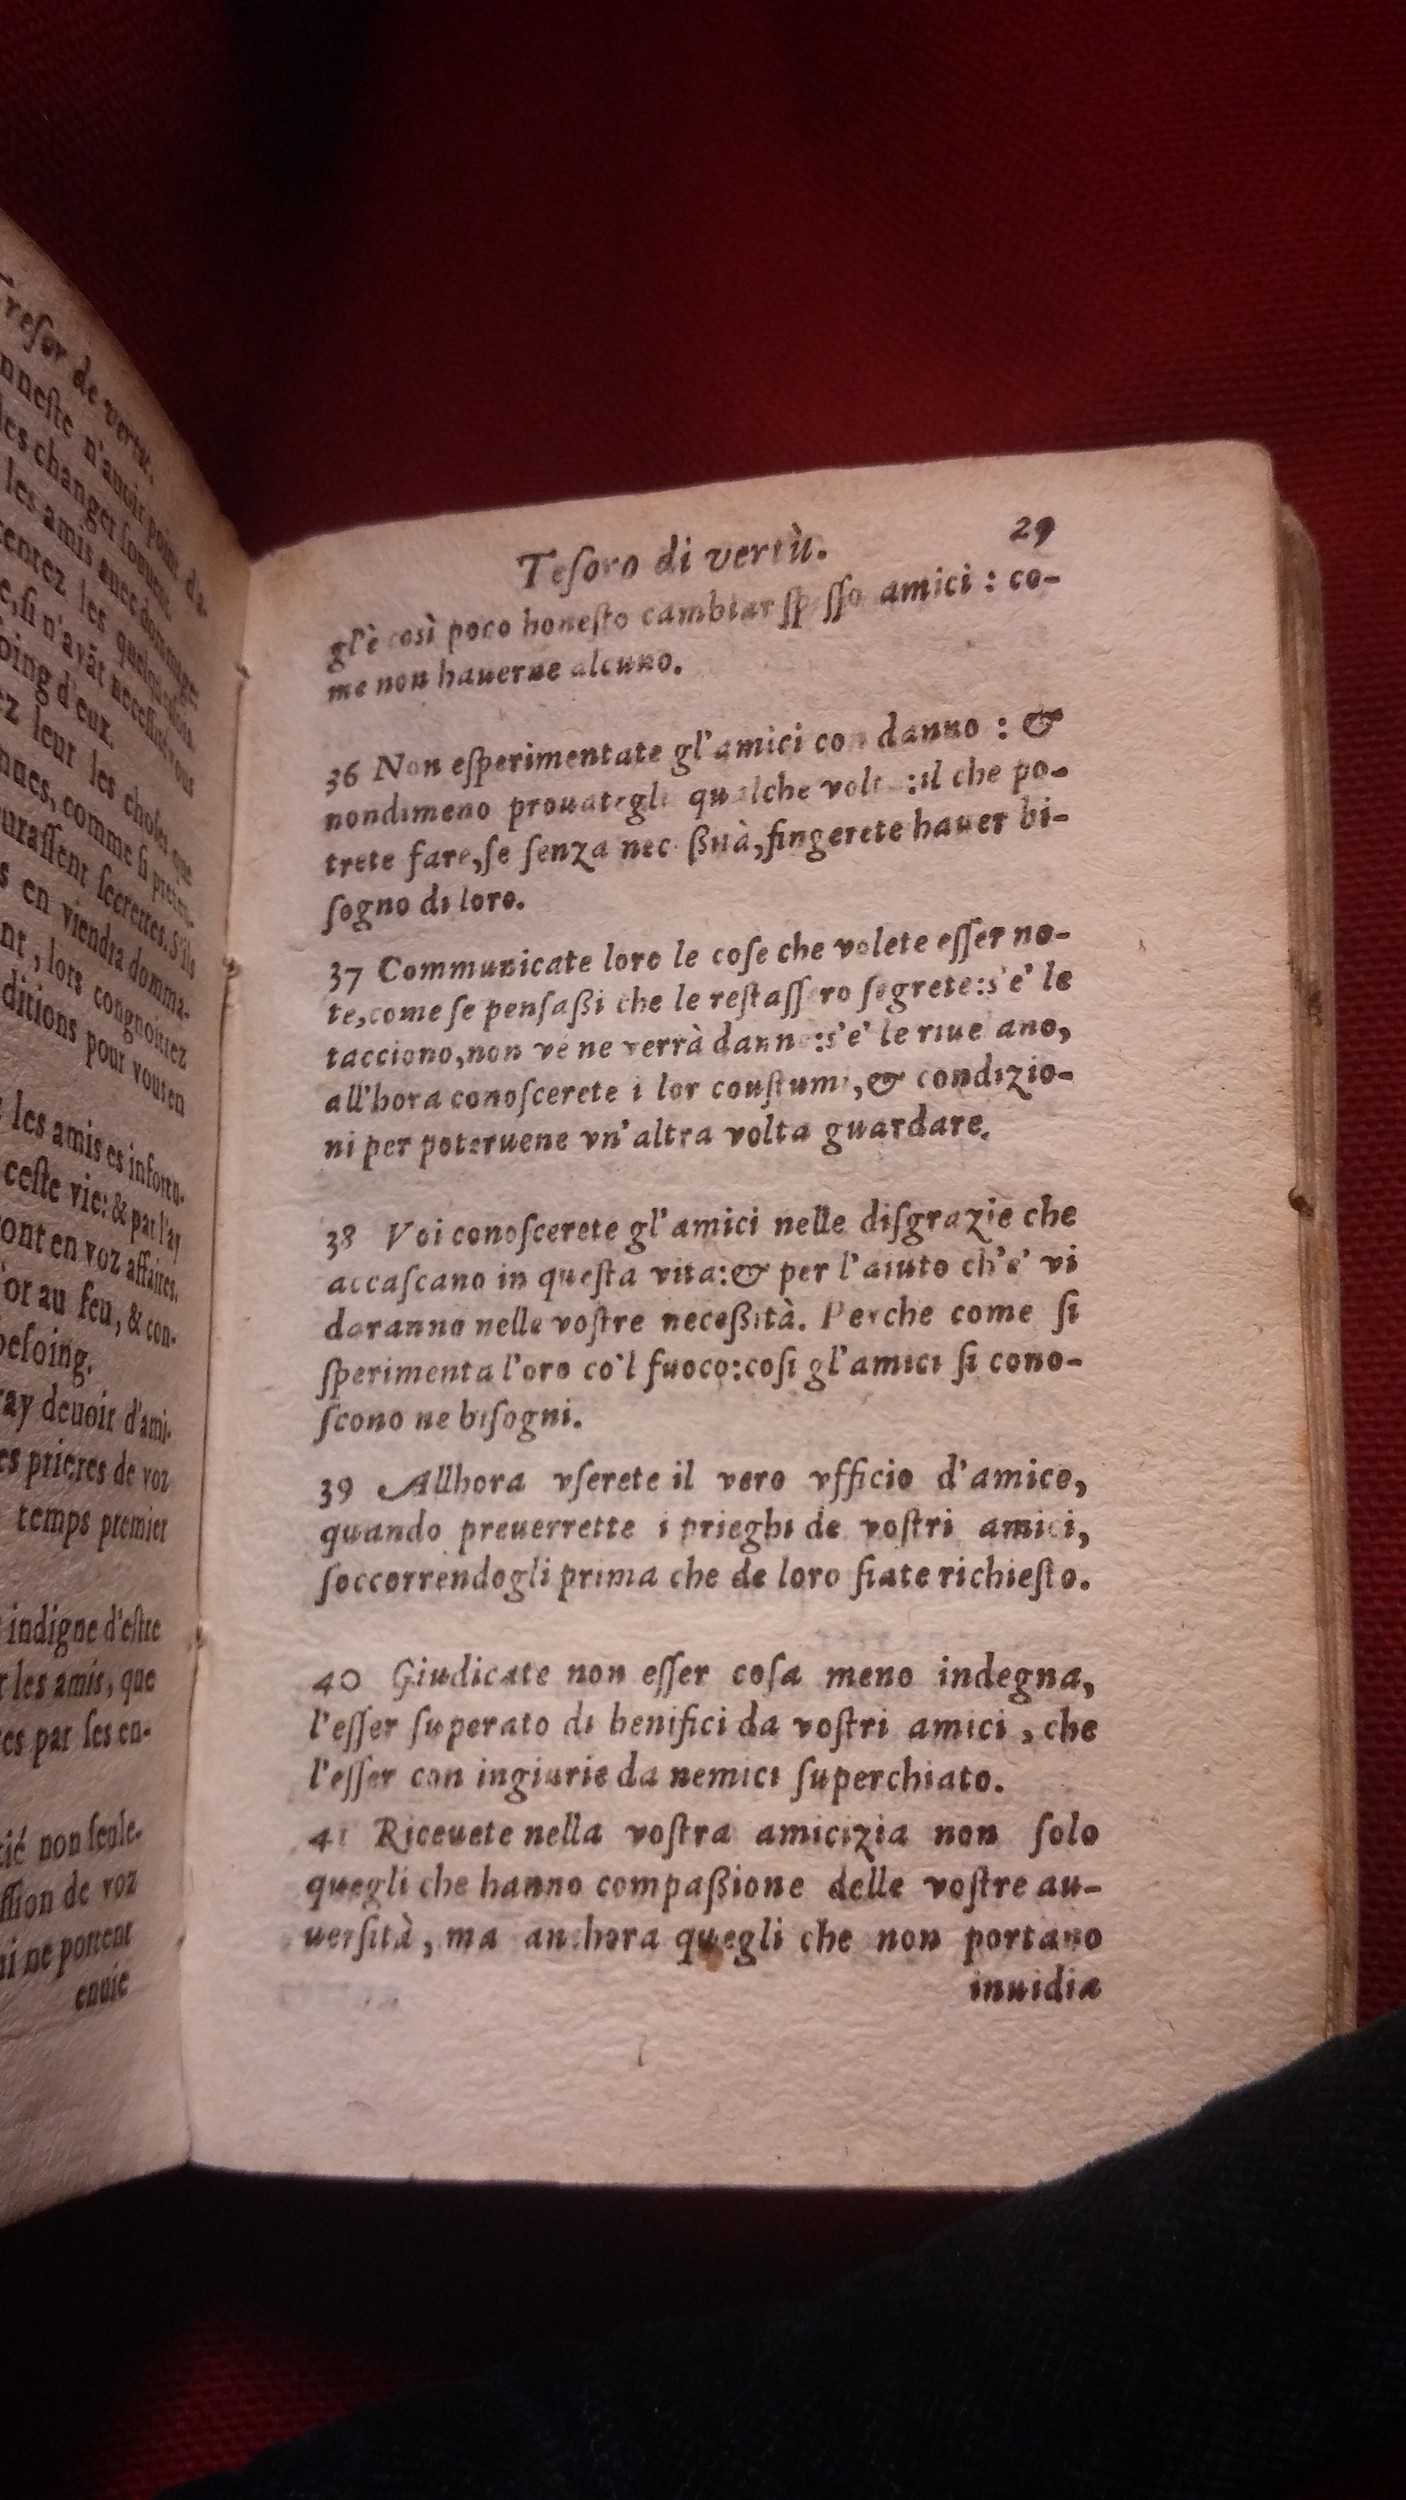 Tresor de vertu.
nneste n'auoir point d'a-
les changer souuent.
les amis auec dommage:
tentez les quelquesfois.
e, si n'ayãt necessité vous
oing d'eux.
ez leur les choses que
nues, comme si preten-
urassent secrettes. S'ils
s en viendra domma-
nt, lors congnoistrez
ditions pour vous en
les amis es infortu-
ceste vie: & par l'ay
ont en voz affaires.
'or au feu, & con-
besoing.
ray deuoir d'ami-
es prieres de voz
temps premier
indigne d'estre
r les amis, que
es par ses en-
tié non seule-
ssion de voz
ui ne portent
enuie
Tesoro di vertù. 29
gl'è così poco honesto cambiar spesso amici : co-
me non hauerne alcuno.
36 Non esperimentate gl'amici con danno : &
nondimeno prouategli qualche volta :il che po-
trete fare,se senza necßità,fingerete hauer bi-
sogno di loro.
37 Communicate loro le cose che volete esser no-
te,come se pensaßi che le restassero segrete:s'e' le
tacciono,non ve ne verrà danno:s'e' le riuelano,
all'hora conoscerete i lor coustumi,& condizio-
ni per poteruene vn'altra volta guardare.
38 Voi conoscerete gl'amici nelle disgrazie che
accascano in questa vita:& per l'aiuto ch'e' vi
daranno nelle vostre neceßità. Perche come si
sperimenta l'oro co'l fuoco:cosi gl'amici si cono-
scono ne bisogni.
39 Allhora vserete il vero vfficio d'amico,
quando preuerrette i prieghi de vostri amici,
soccorrendogli prima che de loro siate richiesto.
40 Giudicate non esser cosa meno indegna,
l'esser superato di benifici da vostri amici , che
l'esser con ingiurie da nemici superchiato.
41 Riceuete nella vostra amicizia non solo
quegli che hanno compaßione delle vostre au-
uersità, ma anchora quegli che non portano
inuidia